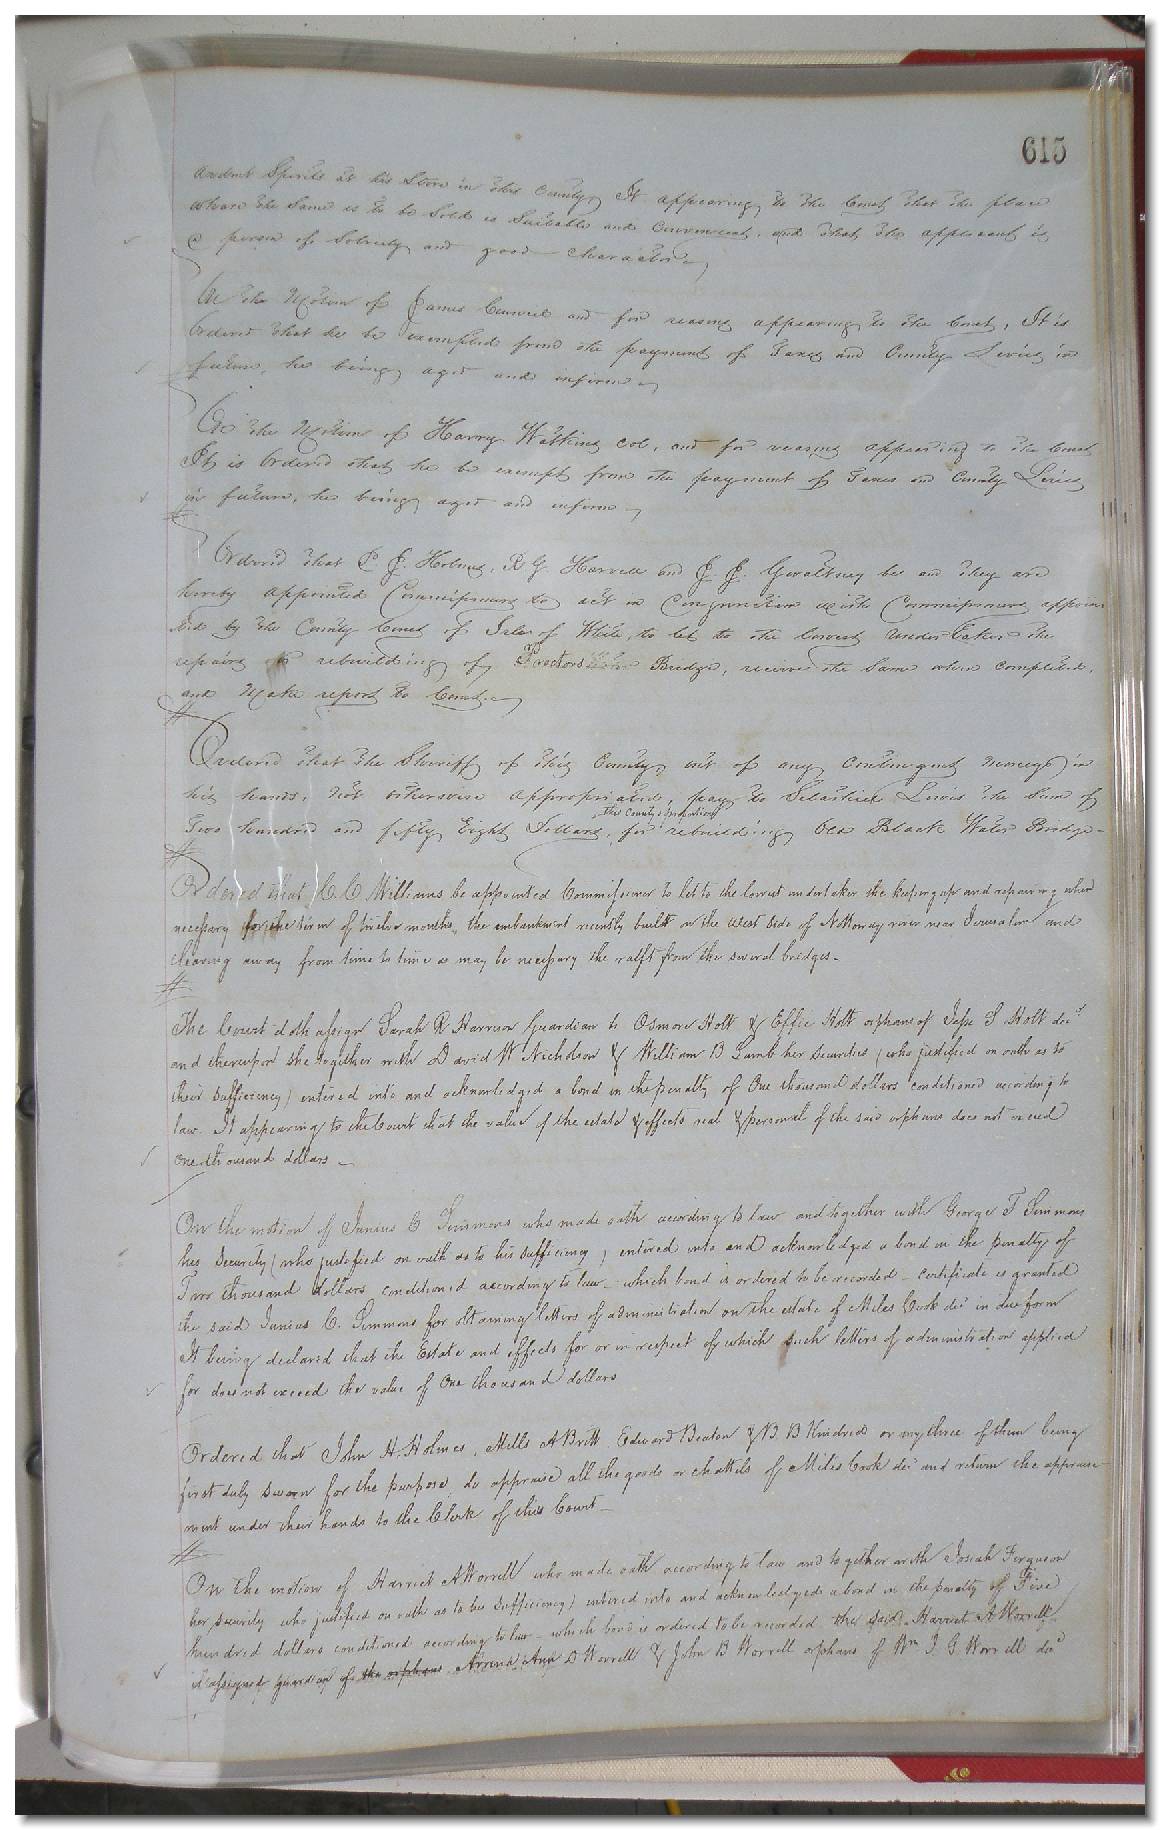 615
ardent Spirits at his Store in this County, It appearing to the Court that the place
where the Same is to be Sold is Suitable and Convenient, and that the applicant is
a person of Sobriety and good character
On the Motion of James Council and for reasons appearing to the Court, It is
Ordered that he be exempted from the payment of Taxes and County Levies in
future, he being aged and infirm
On the Motion of Harry Watkins col, and for reasons appearing to the Court
It is Ordered that he be exempt from the payment of Taxes and County Levies
in future, he being aged and infirm
Ordered that J. Holmes, R G. Harrell and J. J. Gwaltney be and they are
hereby appointed Commissioners to act in Conjunction with Commissioners appoin
ted by the County Court of Isle of White, to let to the lowest undertaker the
repairs or rebuilding of Proctors Bridge, receive the Same when completed,
and Make report to Court
Ordered that the Sheriff of this County, out of any Contingent moneys in
his hands, not otherwise appropriated, pay to Lewis the Sum of
the County's proportion
Two hundred and fifty Eight Dollars, for rebuilding Old Black Water Bridge
Ordered that C. C Williams be appointed Commissioner to let to the lowest undertaker the keeping up and repairing when
necessary for the term of twelve months, the embankment recently built on the west side of Nottoway river near Jerusalem and
clearing away from time to time as may be necessary the raft from the several bridges
The Court doth assign Sarah R Harrison Guardian to Osmore Holt & Effie Holt orphans of Jesse S Holt decd
and thereupon she together with David W Nicholson & William B Lamb her securities (who justified on oath as to
their sufficiency) entered into and acknowledged a bond in the penalty of One thousand dollars conditioned according to
law. It appearing to the Court that the value of the estate & effects real & personal of the said orphans does not exceed
One thousand dollars
On the motion of Junius C Simmons who made oath according to law and together with George T Simmons
his Security (who justified on oath as to his sufficiency) entered into and acknowledged a bond in the penalty of
Two thousand dollars conditioned according to law which bond is ordered to be recorded certificate is granted
the said Junius C. Simmons for obtaining letters of administration on the estate of Miles Cook decd in due form
It being declared that the Estate and effects for or in respect of which such letters of administration applied
for does not exceed the value of One thousand dollars
Ordered that John H. Holmes, Mills A Britt Edward Beaton & B. B Kindred or any three of them being
first duly sworn for the purpose do appraise all the goods or chattels of Miles Cook decd and return the appraise
ment under their hands to the Clerk of this Court
On the motion of Harriet A Worrell who made oath according to law and together with Josiah Ferguson
her security who justified on oath as to his sufficiency) entered into and acknowledged a bond in the penalty of Five
hundred dollars conditioned according to law which bond is ordered to be recorded the said Harriet A Worrell
is assigned guardian of the orphans Ann D Worrell & John B Worrell orphans of Wm J. G. Worrell decd